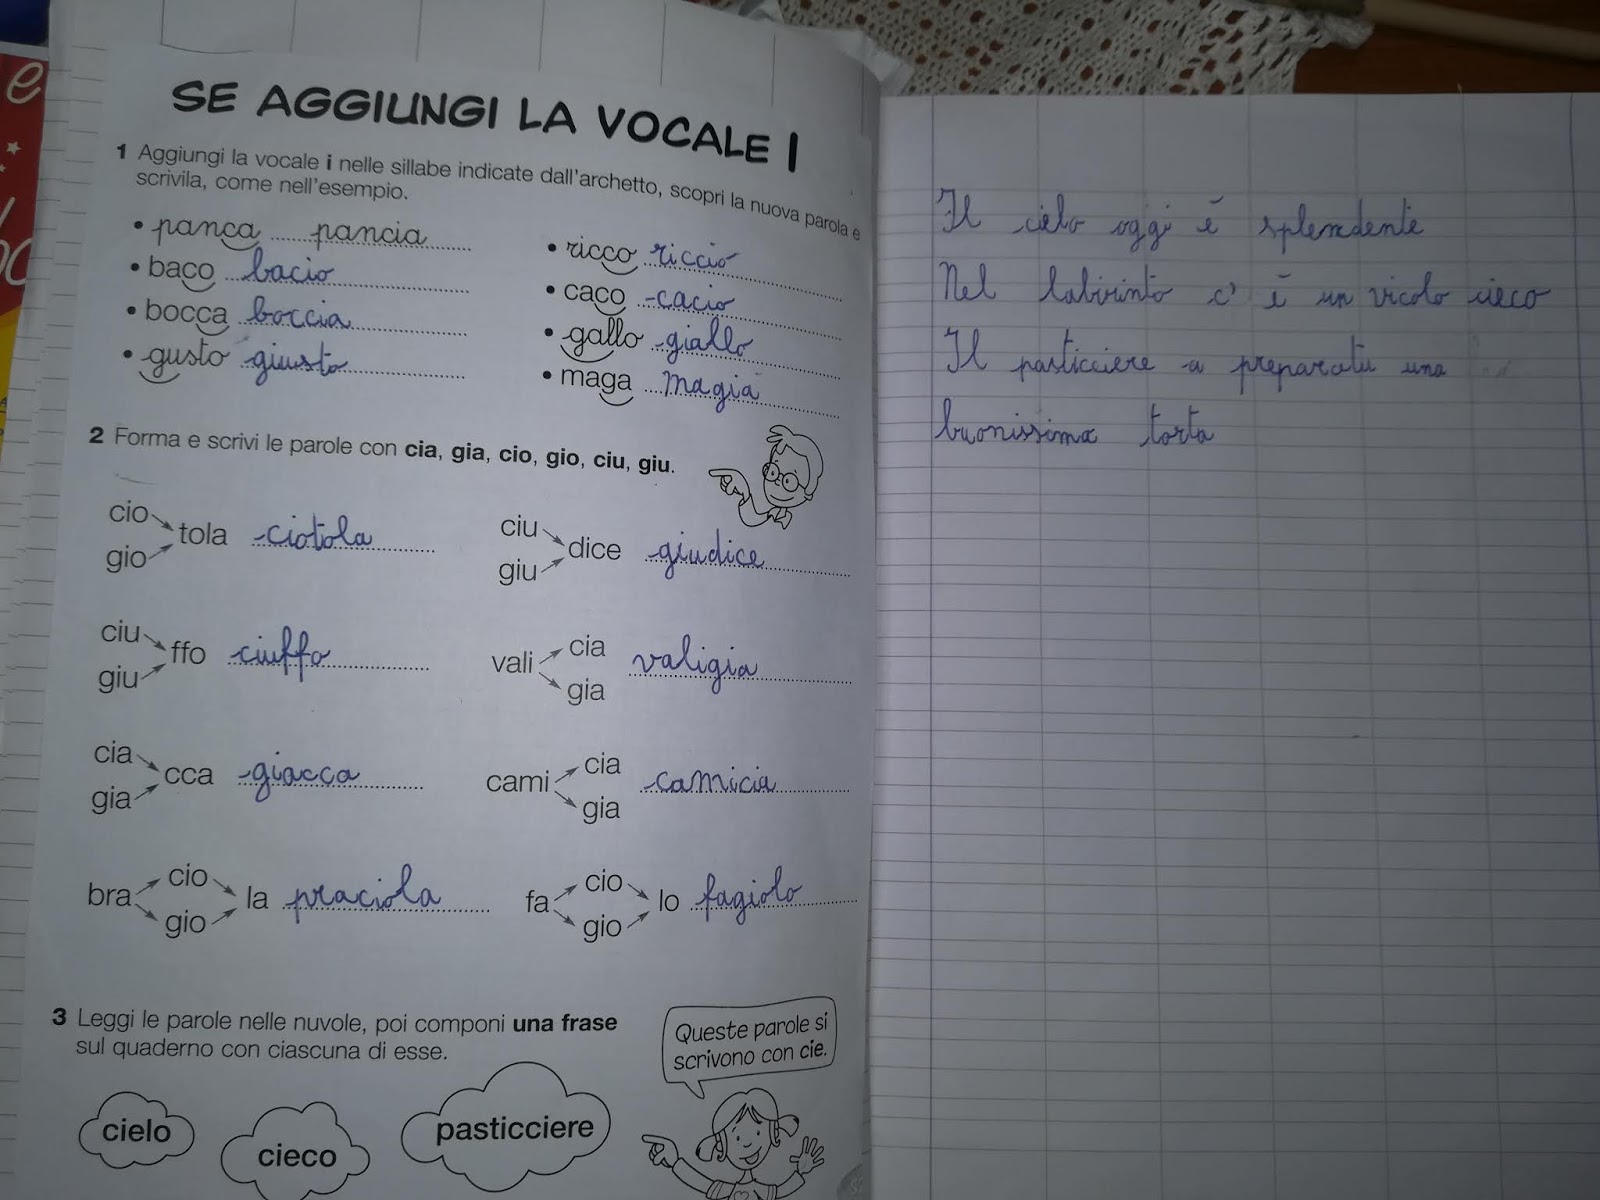 SE AGGIUNGI LA VOCALE I
1 Aggiungi la vocale i nelle sillabe indicate dall'archetto, scopri la nuova parola e
scrivila, come nell'esempio.
• panca pancia
• baco bacio
• bocca boccia
• gusto giusto
• ricco riccio
• caco cacio
• gallo giallo
• maga magia
2 Forma e scrivi le parole con cia, gia, cio, gio, ciu, giu.
cio
gio
tola ciotola
ciu
giu
dice giudice
ciu
giu
ffo ciuffo
vali
cia
gia
valigia
cia
gia
cca giacca
cami
cia
gia
camicia
bra
cio
gio
la praciola
fa
cio
gio
lo fagiolo
3 Leggi le parole nelle nuvole, poi componi una frase
sul quaderno con ciascuna di esse.
Queste parole si
scrivono con cie.
cielo
cieco
pasticciere
Il cielo oggi è splendente
Nel labirinto c'è un vicolo cieco
Il pasticciere a preparatu una
buonissima torta